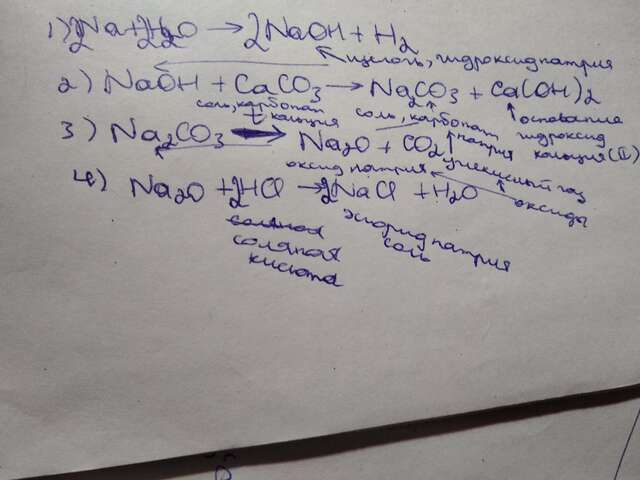 1) 2Na+2H2O → 2NaOH + H2
щелочь, гидроксид натрия
2) NaOH + CaCO3 → Na2CO3 + Ca(OH)2
соль, карбонат кальция
соль, карбонат натрия
основание гидроксид кальция (II)
3) Na2CO3 → Na2O + CO2
оксид натрия
углекислый газ
оксиды
4) Na2O + 2HCl → 2NaCl + H2O
соляная кислота
хлорид натрия
соль